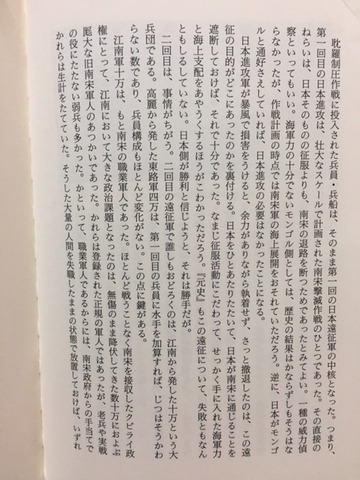 耽羅制圧作戦に投入された兵員・兵船は、そのまま第一回の日本遠征軍の中核となった。つまり、
第一回目の日本進攻は、壮大なスケールで計画された南宋撃滅作戦のひとつであった。その直接の
ねらいは、日本そのものの征服よりも、南宋の退路を断つためであったとみてよい。一種の威力偵
察といってもいい。海軍力の十分でないモンゴル側としては、歴史の結果はかならずしもそうはな
らなかったが、作戦計画の時点では南宋軍の海上展開をおそれていただろう。逆に、日本がモンゴ
ルと通好さえしていれば、日本進攻の必要はなかったことになる。
日本進攻軍が暴風で損害をうけると、余力がありながら執着せず、さっと撤退したのは、この遠
征の目的がどこにあったのかを裏付ける。日本をひとあたりたたいて、日本が南宋に通じることを
遮断しておけば、それで十分であった。なまじ征服活動にこだわって、せっかく手に入れた海軍力
と海上支配をあやうくするほうがこわかっただろう。『元史』もこの遠征について、失敗ともなん
ともしるしていない。日本側が勝利と信じようと、それは勝手だが。
二回目は、事情がちがう。二回目の遠征軍で誰しもおどろくのは、江南から発した十万という大
兵団である。高麗から発した東路軍四万は、第一回目の兵員に水手を加算すれば、じつはそうかわ
らない数であり、兵員構成もほとんど変化がない。この点に鍵がある。
江南軍十万は、もと南宋の職業軍人であった。ほとんど戦うことなく南宋を接収したクビライ政
権にとって、江南において大きな政治課題となったのは、無傷のまま降伏してきた数十万におよぶ
厖大な旧南宋軍人のあつかいであった。かれらは登録された正規の軍人ではあったが、老兵や実戦
の役にたたない弱兵も多かった。かといって、職業軍人であるからには、南宋政府からの手当てで
かれらは生計をたてていた。そうした大量の人間を失職したままの状態で放置しておけば、いずれ